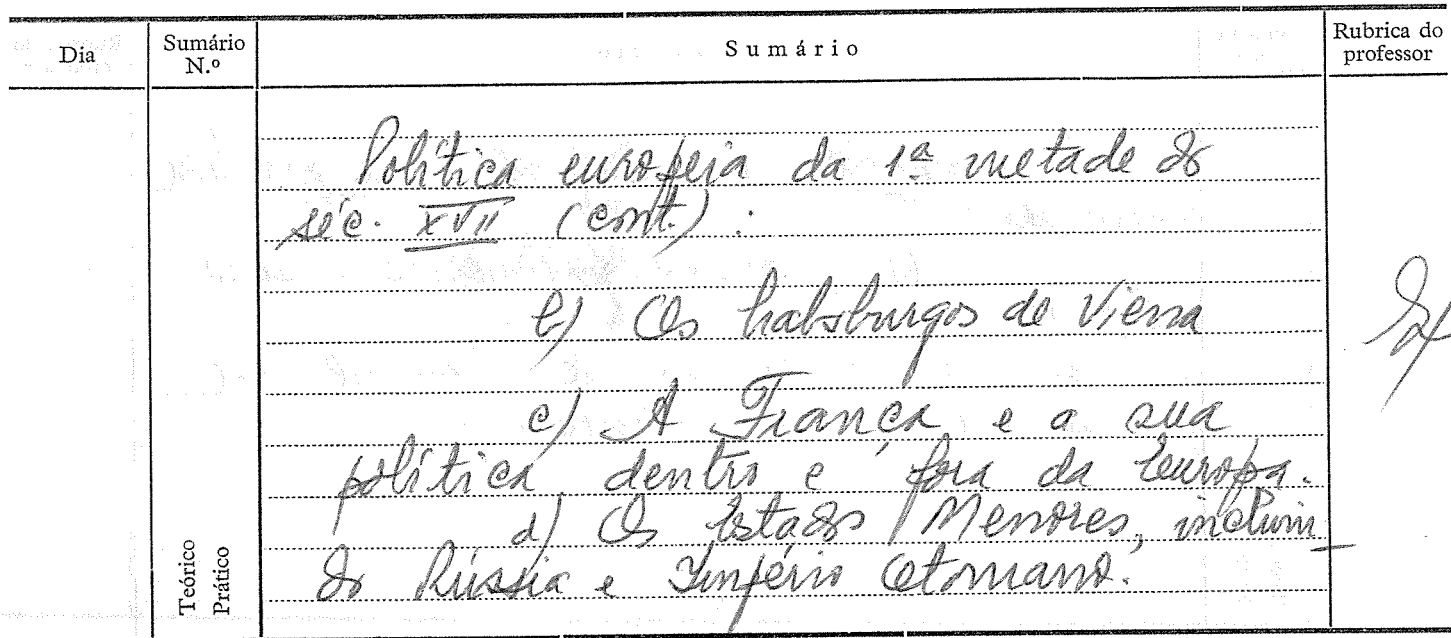 Dia
Sumário N.º
Sumário
Rubrica do professor
Política europeia da 1ª metade do
séc. XVII (cont.):
b) Os habsburgos de Viena
c) A França e a sua
política dentro e fora da Europa.
d) Os Estados Menores, incluin-
do Rússia e Império Otomano.
Teórico
Prático